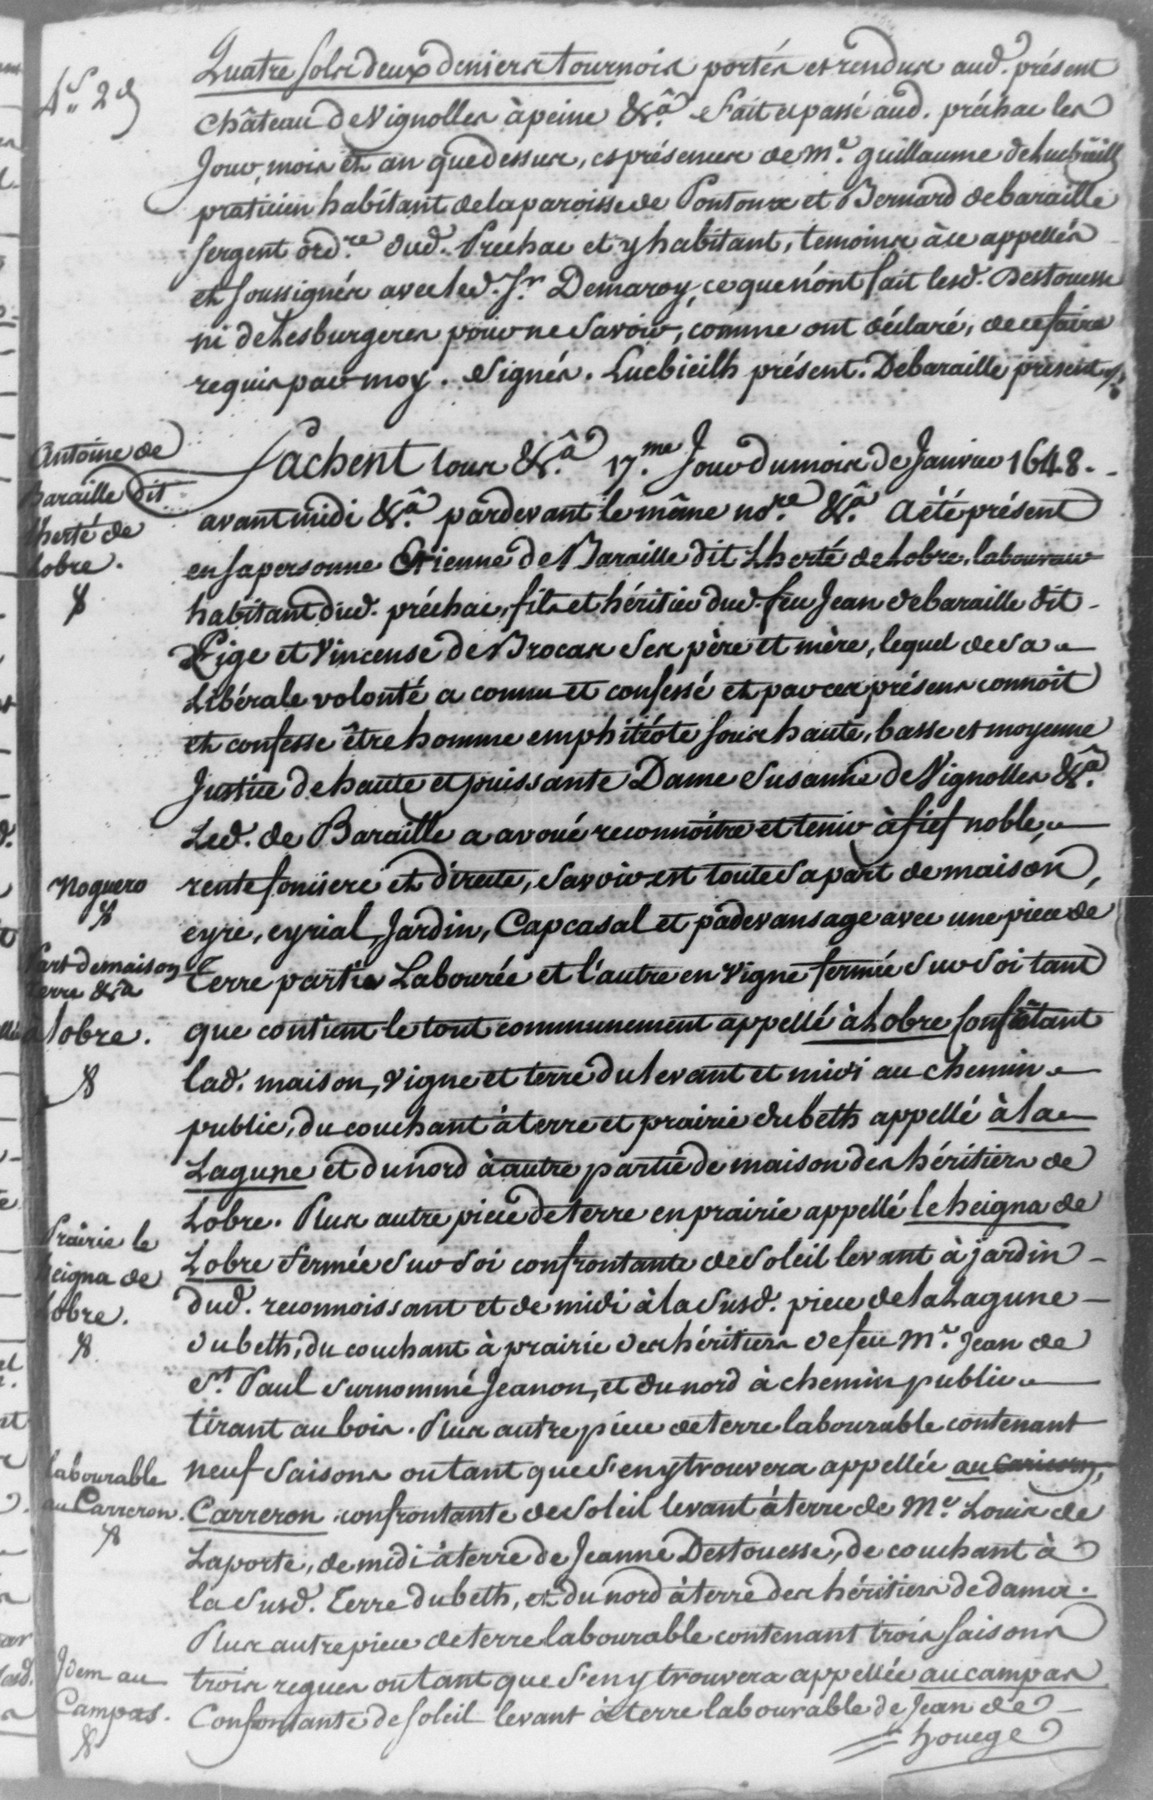 4.s 2.d
Quatre sols deux deniers tournois portés et rendus aud. présent
château de Vignolles à peine &.a fait et passé aud. préchac les
jour, mois et an que dessus, es présences de M.e guillaume de Lucbieilh
praticien habitant de la paroisse de Pontonx et Bernard debaraille
sergent ord.re dud. Prechac et y habitant, temoins à ce appellés
et soussignés avec led. S.r Demaroy, ce que n'ont fait lesd. Destouesse
ni de Lesburgeres pour ne savoir, comme ont déclaré, de ce faire
requis par moy. Signés. Lucbieilh présent. Debaraille présent
Antoine de
Baraille dit
Lherté de
Lobre.
Sachent tous &.a 17.me Jour du mois de Janvier 1648.
avant midi &.a pardevant le même no.re &.a a été présent
en sa personne Etienne de Baraille dit Lherté de Lobre, laboureur
habitant dud. préchac, fils et héritier dud. feu Jean debaraille dit
Pige et Vincense de Brocas ses père et mère, lequel de sa
Libérale volonté a connu et confessé et par ces présens connoit
et confesse être homme emphitéote sous haute, basse et moyenne
Justice de haute et puissante Dame Susanne de Vignolles &.a
Led. de Baraille a avoué reconnoître et tenir à fief noble,
Noguero
rente fonsiere et directe, savoir est toute sa part de maison,
eyre, eyrial, Jardin, Capcasal et padevansage avec une piece de
Part de maison
terre &a
a Lobre.
Terre partie Labourée et l'autre en vigne fermée sur soi tant
que contient le tout communement appellé à Lobre Confrontant
lad. maison, vigne et terre du levant et midi au chemin
public, du couchant à terre et prairie dubeth appellé à la
Lagune et du nord à autre partie de maison des héritiers de
Lobre. Plus autre piece de terre en prairie appellé le heigna de
Prairie le
heigna de
Lobre.
Lobre fermée sur soi confrontante de soleil levant à jardin
dud. reconnoissant et de midi à la susd. piece de la Lagune
dubeth, du couchant à prairie des héritiers de feu M.e Jean de
S.t Paul surnommé Jeanon, et du nord à chemin public
tirant au bois. Plus autre piece de terre labourable contenant
neuf saisons ou tant que s'en y trouvera appellée au
labourable
au Carreron.
Carreron confrontante de soleil levant à terre de M.e Louis de
Laporte, de midi à terre de Jeanne Destouesse, de couchant à
la susd. Terre dubeth, et du nord à terre des héritiers de dama.
Plus autre piece de terre labourable contenant trois saisons
Idem au
Campas.
trois regues ou tant que s'en y trouvera appellée au campas
Confrontante de soleil levant à terre labourable de Jean de
houege